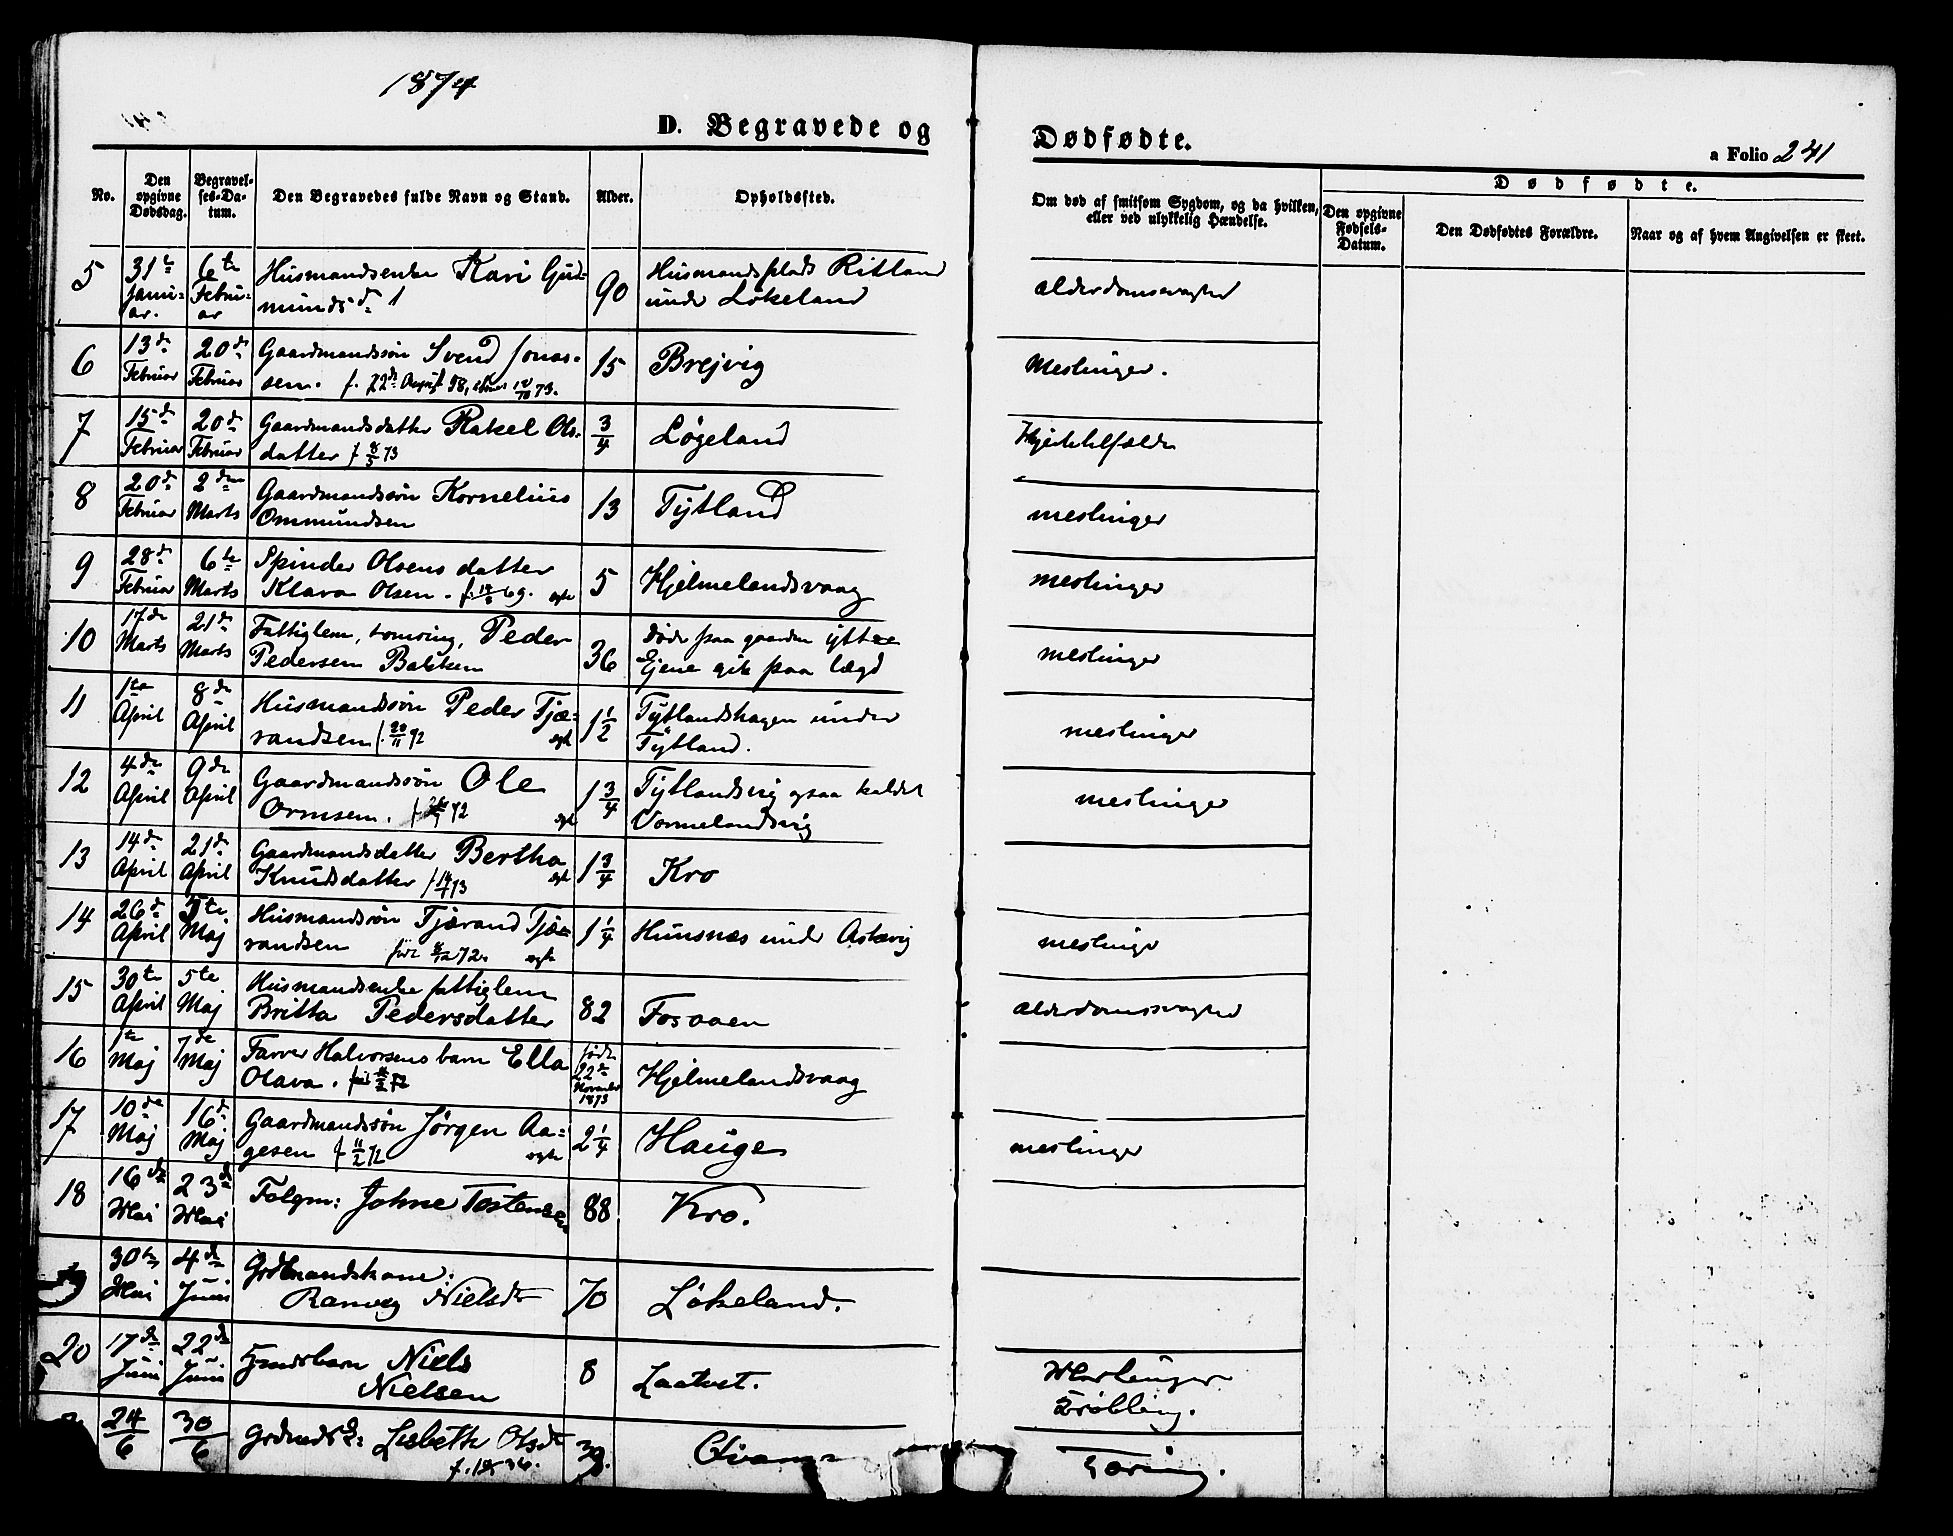 1874
D. Begravede og
Dødfødte.
a Folio 241
No.
Den opgivne Dødsdag.
Begravel-
ses-Da-
tum.
Den Begravedes fulde Navn og Stand.
Alder.
Opholdssted.
Om død af smitsom Sygdom, og da hvilken,
eller ved ulykkelig Hændelse.
Dødfødte.
Den opgivne
Fødsels-
Datum.
Den Dødfødtes Forældre.
Naar og af hvem Angivelsen er skeet.
5 31te Janu-ar. 6te Febru-ar Husmandsenke Kari Gud- 90 Husmandsplads Ritland alderdomssvaghed
munds d.
under Løkeland
6 13de Februar 20de Februar Gaardmandssøn Svend Jonas- 15 Brejvig Meslinger.
sen. f. 22de August 58,
7 15de Februar 20de Februar Gaardmandsdatter Rakel Ols- 3/4 Løgeland
datter f 8/5 73
8 20de Februar 2den Marts Gaardmandssøn Kornelius 13 Tytland meslinger
Ommundsen
9 28de Februar 6te Marts Spinder Olsens datter 5 Hjelmelandsvaag meslinger
Klara Olsen. f. 69. egte
10 17de Marts 21de Marts Fattiglem, Peder 36 døde paa gaarden yttre meslinger
Pedersen Bakken
Ejene gik paa lægd
11 1te April 8de April Husmandssøn Peder Tjæ- 1 1/2 Tytlandshagen under meslinger
randsen f. 20/11 72 egte
Tytland.
12 4de April 9de April Gaardmandssøn Ole 1 3/4 Tytlandsvig ogsaa kaldet meslinger
Ormsen. f 72 egte
Vormelandsvig
13 14de April 21de April Gaardmandsdatter Bertha 1 3/4 Kro
Knudsdatter f 73 egte
14 26de April 5te Maj Husmandssøn Tjærand Tjæ- 1 1/4 Hunsnæs under meslinger
randsen 72. egte
15 30te April 5te Maj Husmandsenke fattiglem 82 Fosaaen alderdomssvaghed
Britta Pedersdatter
16 1te Maj 7de Maj Farver Halvorsens barn Ella født 22de November 1873 Hjelmelandsvaag
Olava.
17 10de Maj 16de Maj Gaardmandssøn Jørgen Aa- 2 1/4 Hauge meslinger
gesen f 11/2 72 egte
18 16de Mai 23de Mai Folgm: Johne Tostensen 88 Kro.
19 30te Mai 4de Juni Grdmandskone: 70 Løkeland.
Ranveg Nielsdt
20 17de Juni 22de Juni Niels 8 Laatveit. Meslinger
Nielsen
24/6 30/6 Lisbeth Olsdt 39. Tæring.
f. 36.